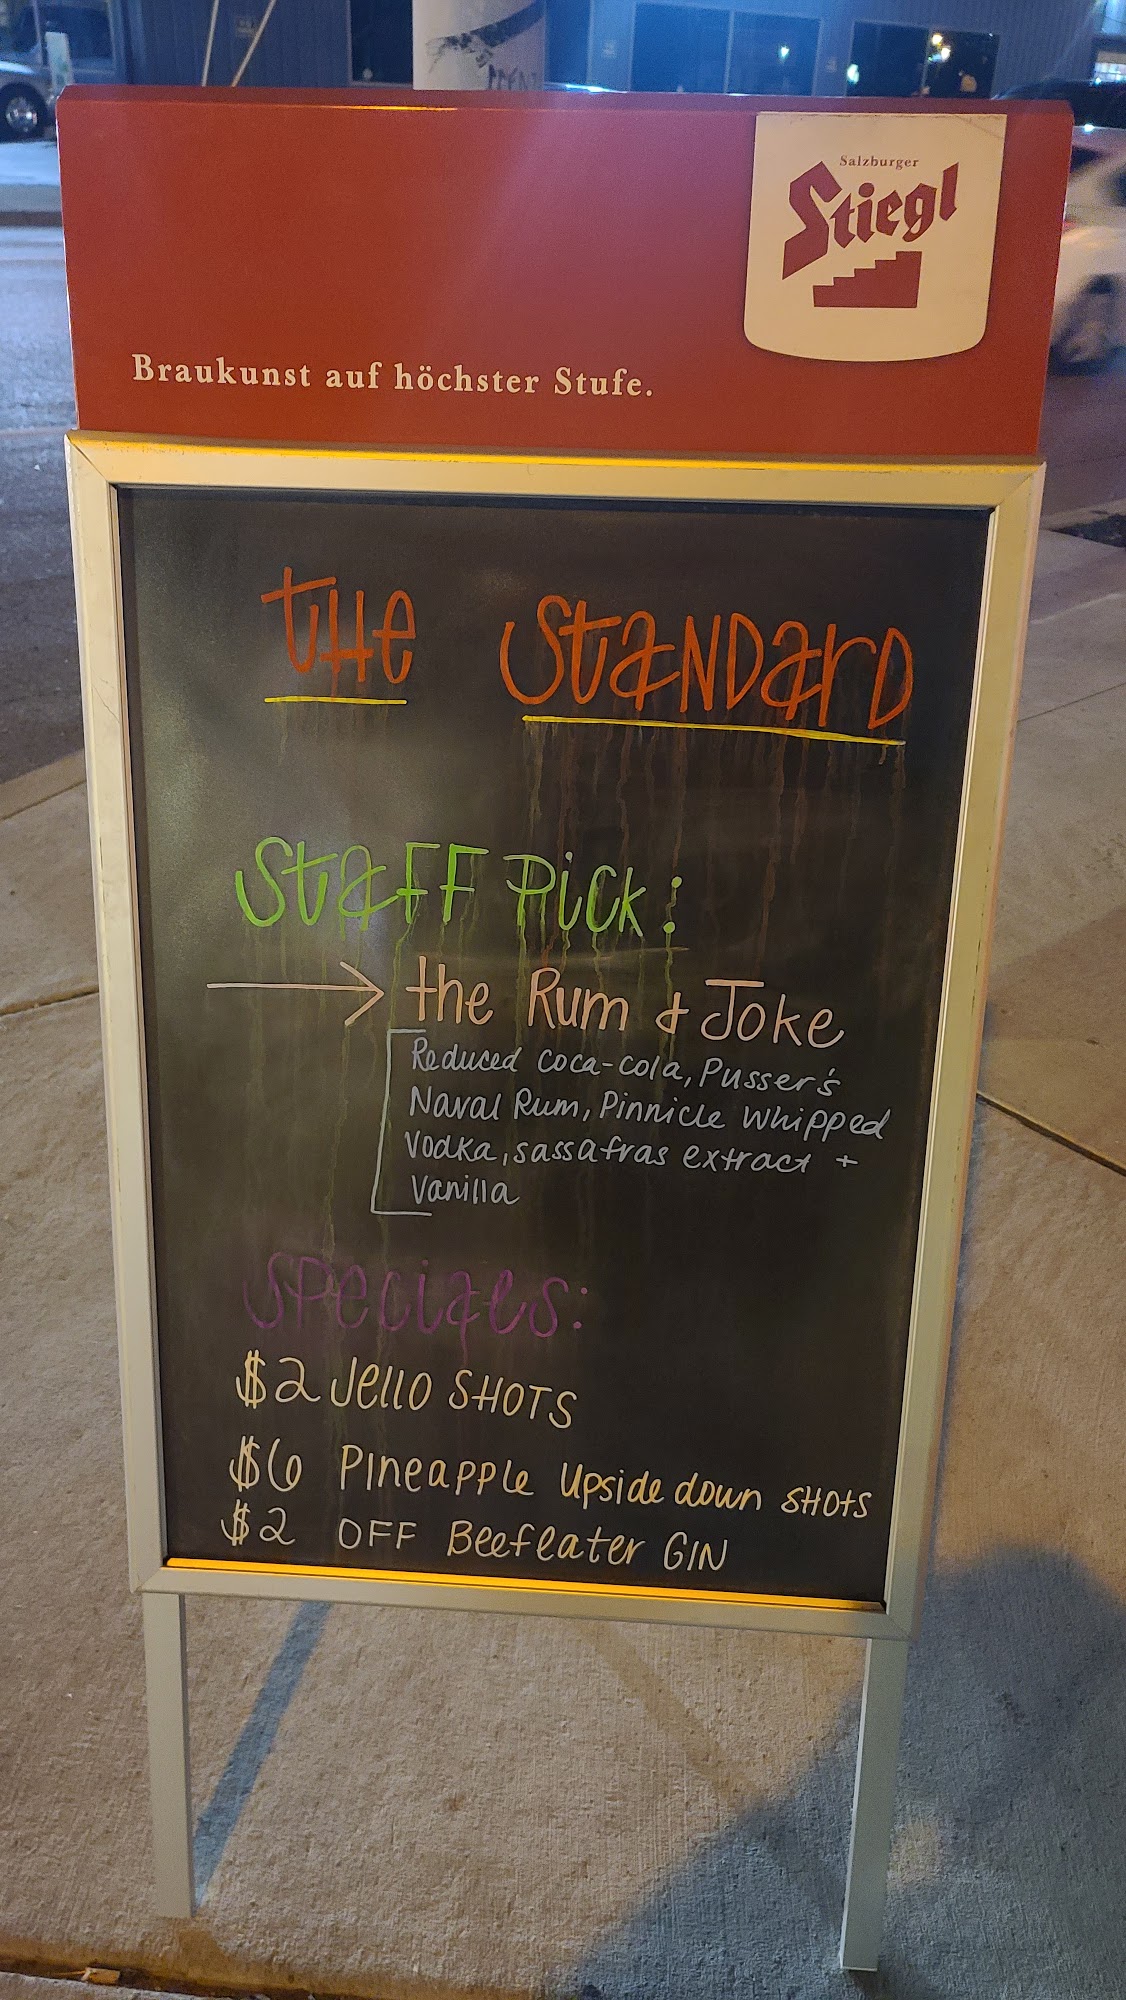 Salzburger
Stiegl
Braukunst auf höchster Stufe.
THE STANDARD
STAFF PICK:
the Rum & Joke
Reduced coca-cola, Pusser's
Naval Rum, Pinnicle whipped
Vodka, sassafras extract +
Vanilla
SPECIALS:
$2 Jello SHOTS
$6 Pineapple Upside down SHOTS
$2 OFF Beefeater GIN